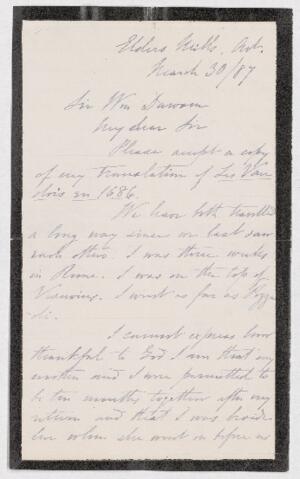 Elders Mills, Ont.
March 30/87
Sir Wm Dawson
My dear Sir
Please accept a copy
of my translation of Les Vau
dois en 1686.
We have both travelled
a long way since we last saw
each other. I was three weeks
in Rome. I was on the top of
Vesuvius. I went as far as Pozzu
oli.
I cannot express how
thankful to God I am that my
mother and I were permitted to
be ten months together after my
return and that I was beside
her when she went in before us